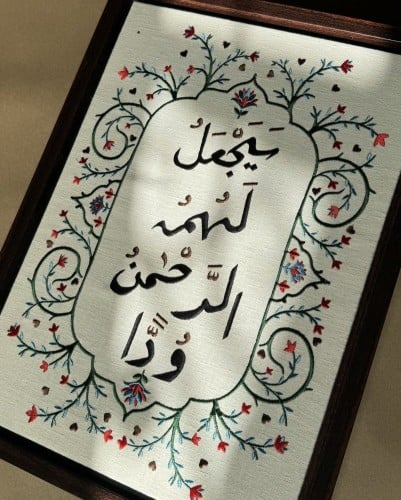 سَيَجْعَلُ
لَهُمُ
الرَّحْمٰنُ
وُدًّا